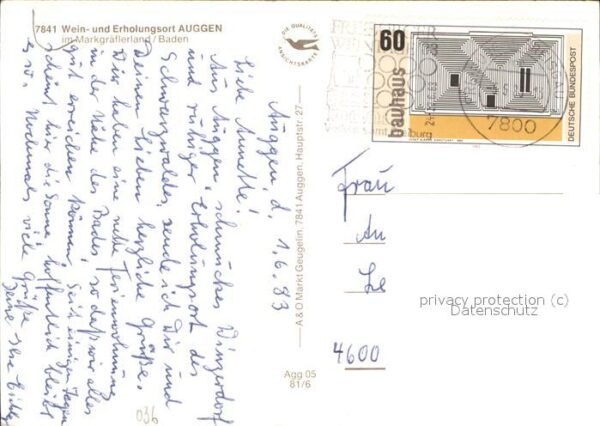 7841 Wein- und Erholungsort AUGGEN
im Markgräflerland / Baden
Auggen, d. 1.6.83
Liebe Annette!
Aus Auggen, schmuckes Winzerdorf
und ruhiger Erholungsort des
Schwarzwaldes, sende ich Dir und
Deinen Lieben herzliche Grüße.
Wir haben eine nette Ferienwohnung
in der Nähe des Bades, so daß wir alles
gut erreichen können. Seit einigen Tagen
scheint hier die Sonne, hoffentlich bleibt
es so. Nochmals viele Grüße
Deine
DIE QUALITÄTS
ANSICHTSKARTE
A & O Markt Geugelin, 7841 Auggen, Hauptstr. 27
Agg 05
81/6
036
FREIBURGER
60
bauhaus
DEUTSCHE BUNDESPOST
7800
Frau
An
Le
4600
privacy protection (c)
Datenschutz